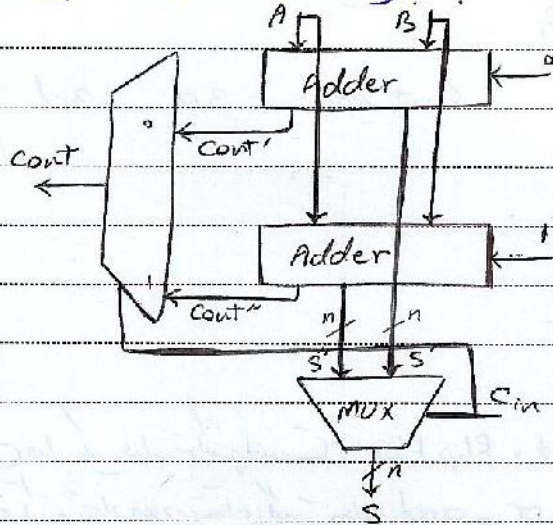 A B
Adder 0
0
Cout'
Cout
Adder 1
1
Cout"
n n
S" S'
Cin
MUX
n
S